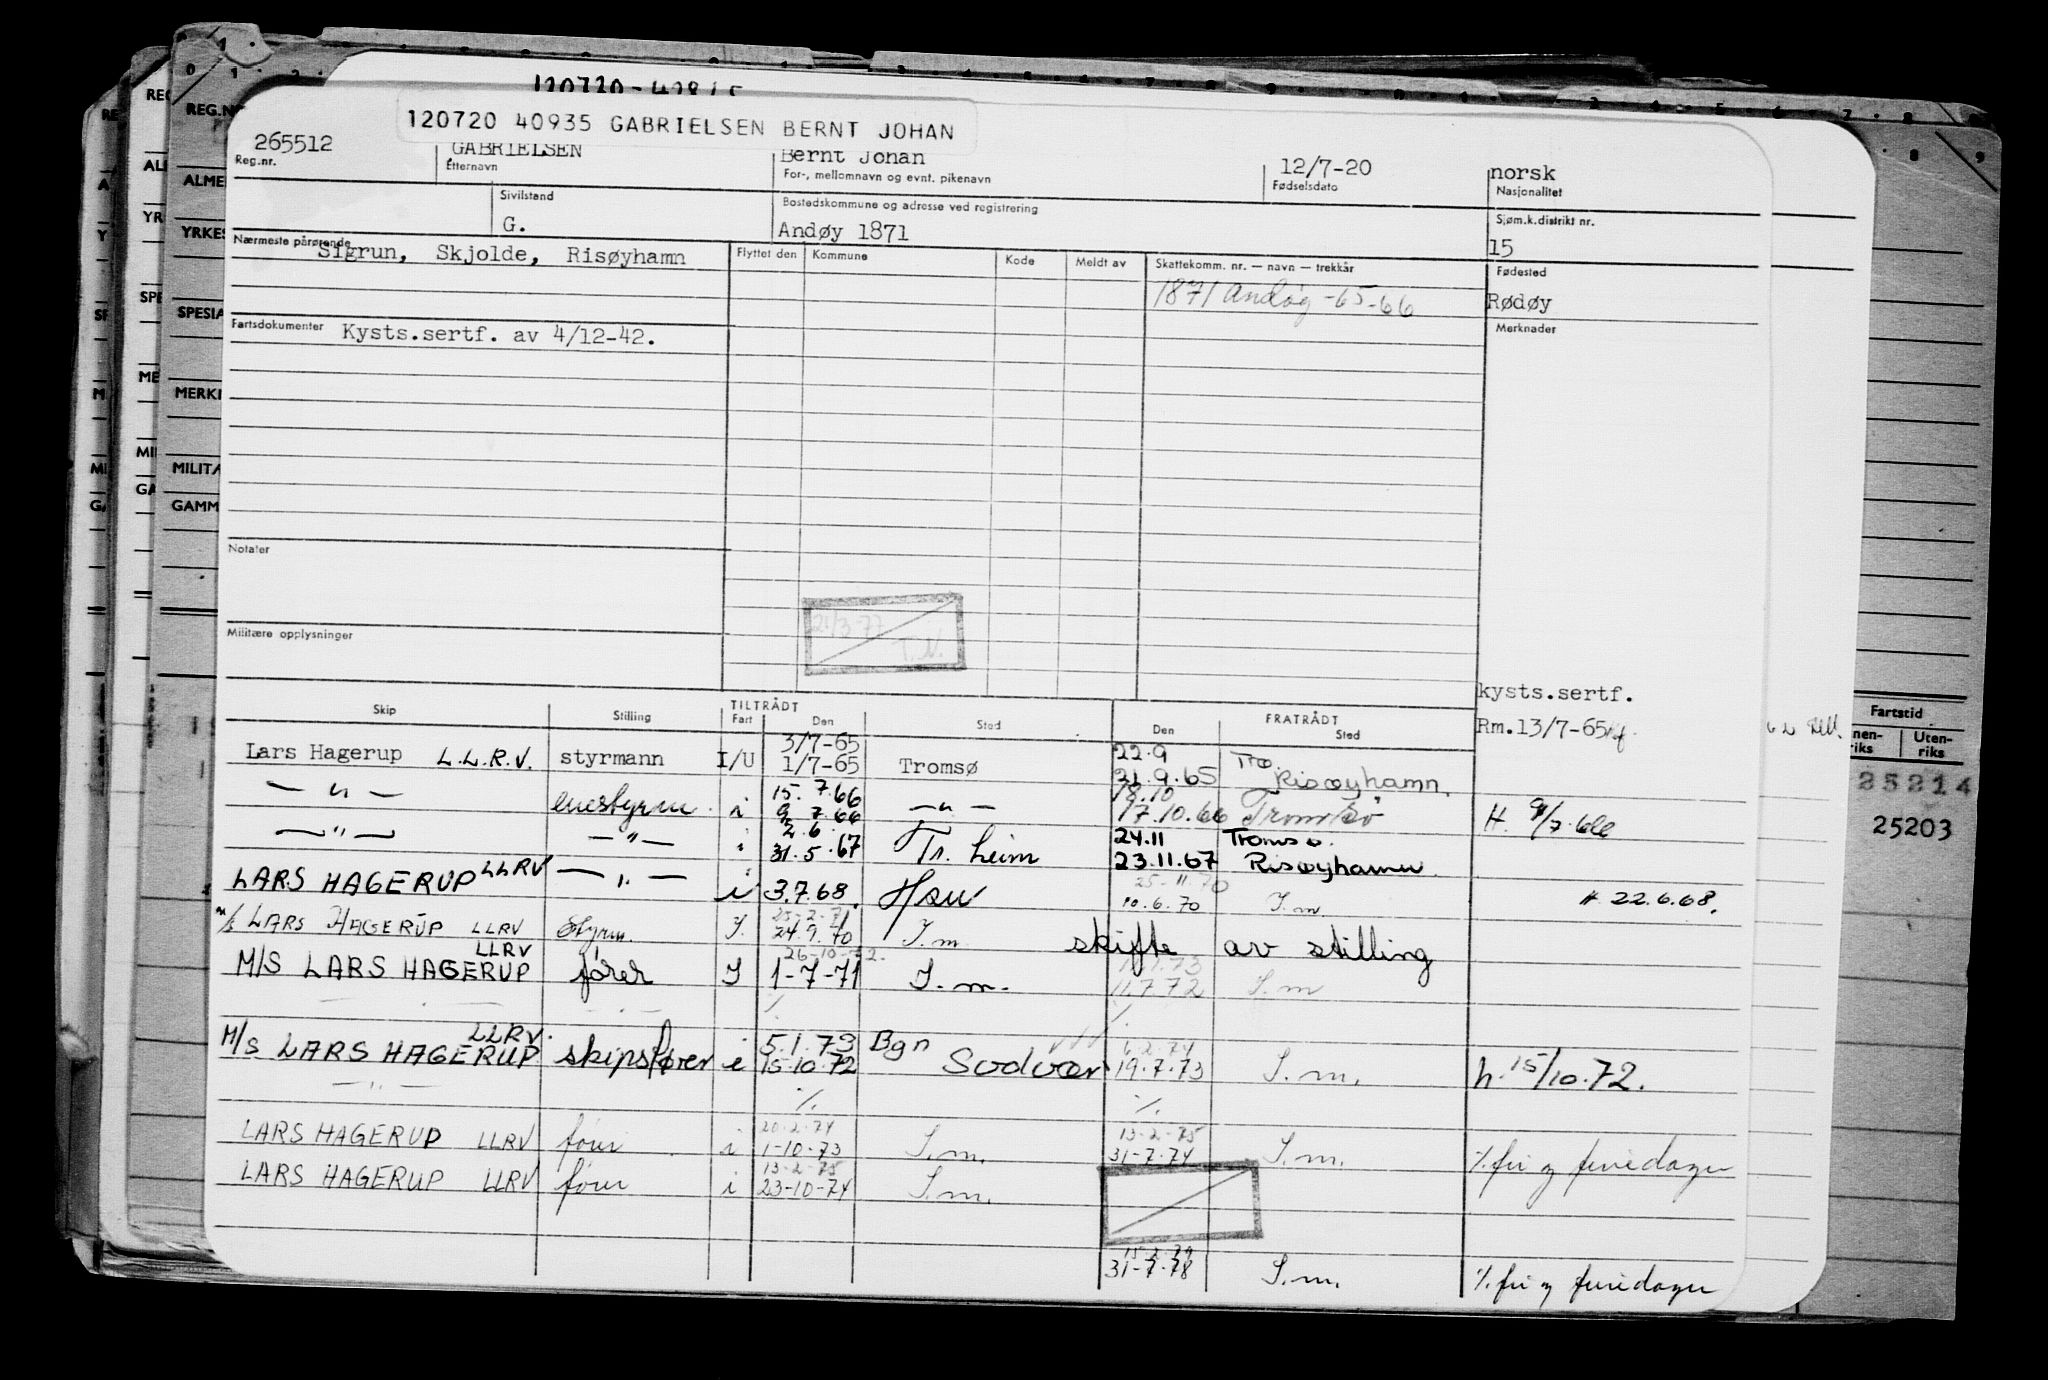 120720 40935 GABRIELSEN BERNT JOHAN
265512 GABRIELSEN Bernt Johan 12/7-20 norsk
Reg.nr. Etternavn For-, mellomnavn og evnt. pikenavn Fødselsdato Nasjonalitet
Sivilstand Bostedskommune og adresse ved registrering Sjøm.k.distrikt nr.
G. Andøy 1871 15
Nærmeste pårørende Flyttet den Kommune Kode Meldt av Skattekomm. nr. — navn — trekkår Fødested
Sigrun, Skjolde, Risøyhamn 1871 Andøy -65-66 Rødøy
Fartsdokumenter Kysts.sertf. av 4/12-42. Merknader
Notater
21/3-77
T.N.
Militære opplysninger
kysts.sertf.
Rm.13/7-65
Skip Stilling TILTRÅDT Fart Den Sted FRATRÅDT Den Sted
3/7-65 22.9 Tro.
Lars Hagerup L.L.R.V. styrmann I/U 1/7-65 Tromsø 21.9.65 Risøyhamn.
15.7.66 18.10
— " — enestyrm. i 9.7.66 — " — 17.10.66 Tromsø H. 9/7.66
2.6. 24.11 Tromsø.
— " — — " — i 31.5.67 Tr.heim 23.11.67 Risøyhamn
25-11.70
LARS HAGERUP LLRV — " — i 3.7.68. Hsu 10.6.70 S.m. H 22.6.68.
M/S LARS HAGERUP LLRV Styrm. I. 24.9.70 S.m. skifte av stilling
26-10-72.
M/S LARS HAGERUP LLRV fører I 1-7-71 S.m. 11.7.72 S.m
5.1.73 Bgn
M/S LARS HAGERUP LLRV. skipsfører i 15.10.72 Sodvær 19.7.73 S.m. h. 15/10.72.
— " — ./. ./.
20.2.74 13-2-75
LARS HAGERUP LLRV fører i 1-10-73 S.m. 31-7-74 S.m. ./. fri og feriedager
13-2-75
LARS HAGERUP LLRV fører i 23-10-74 S.m.
31-7-78 S.m. ./. fri og feriedager
REG.N
ALME
YRKES
SPESIA
MERK
MILITÆ
GAMM
Fartstid
Uten-riks
25214
25203